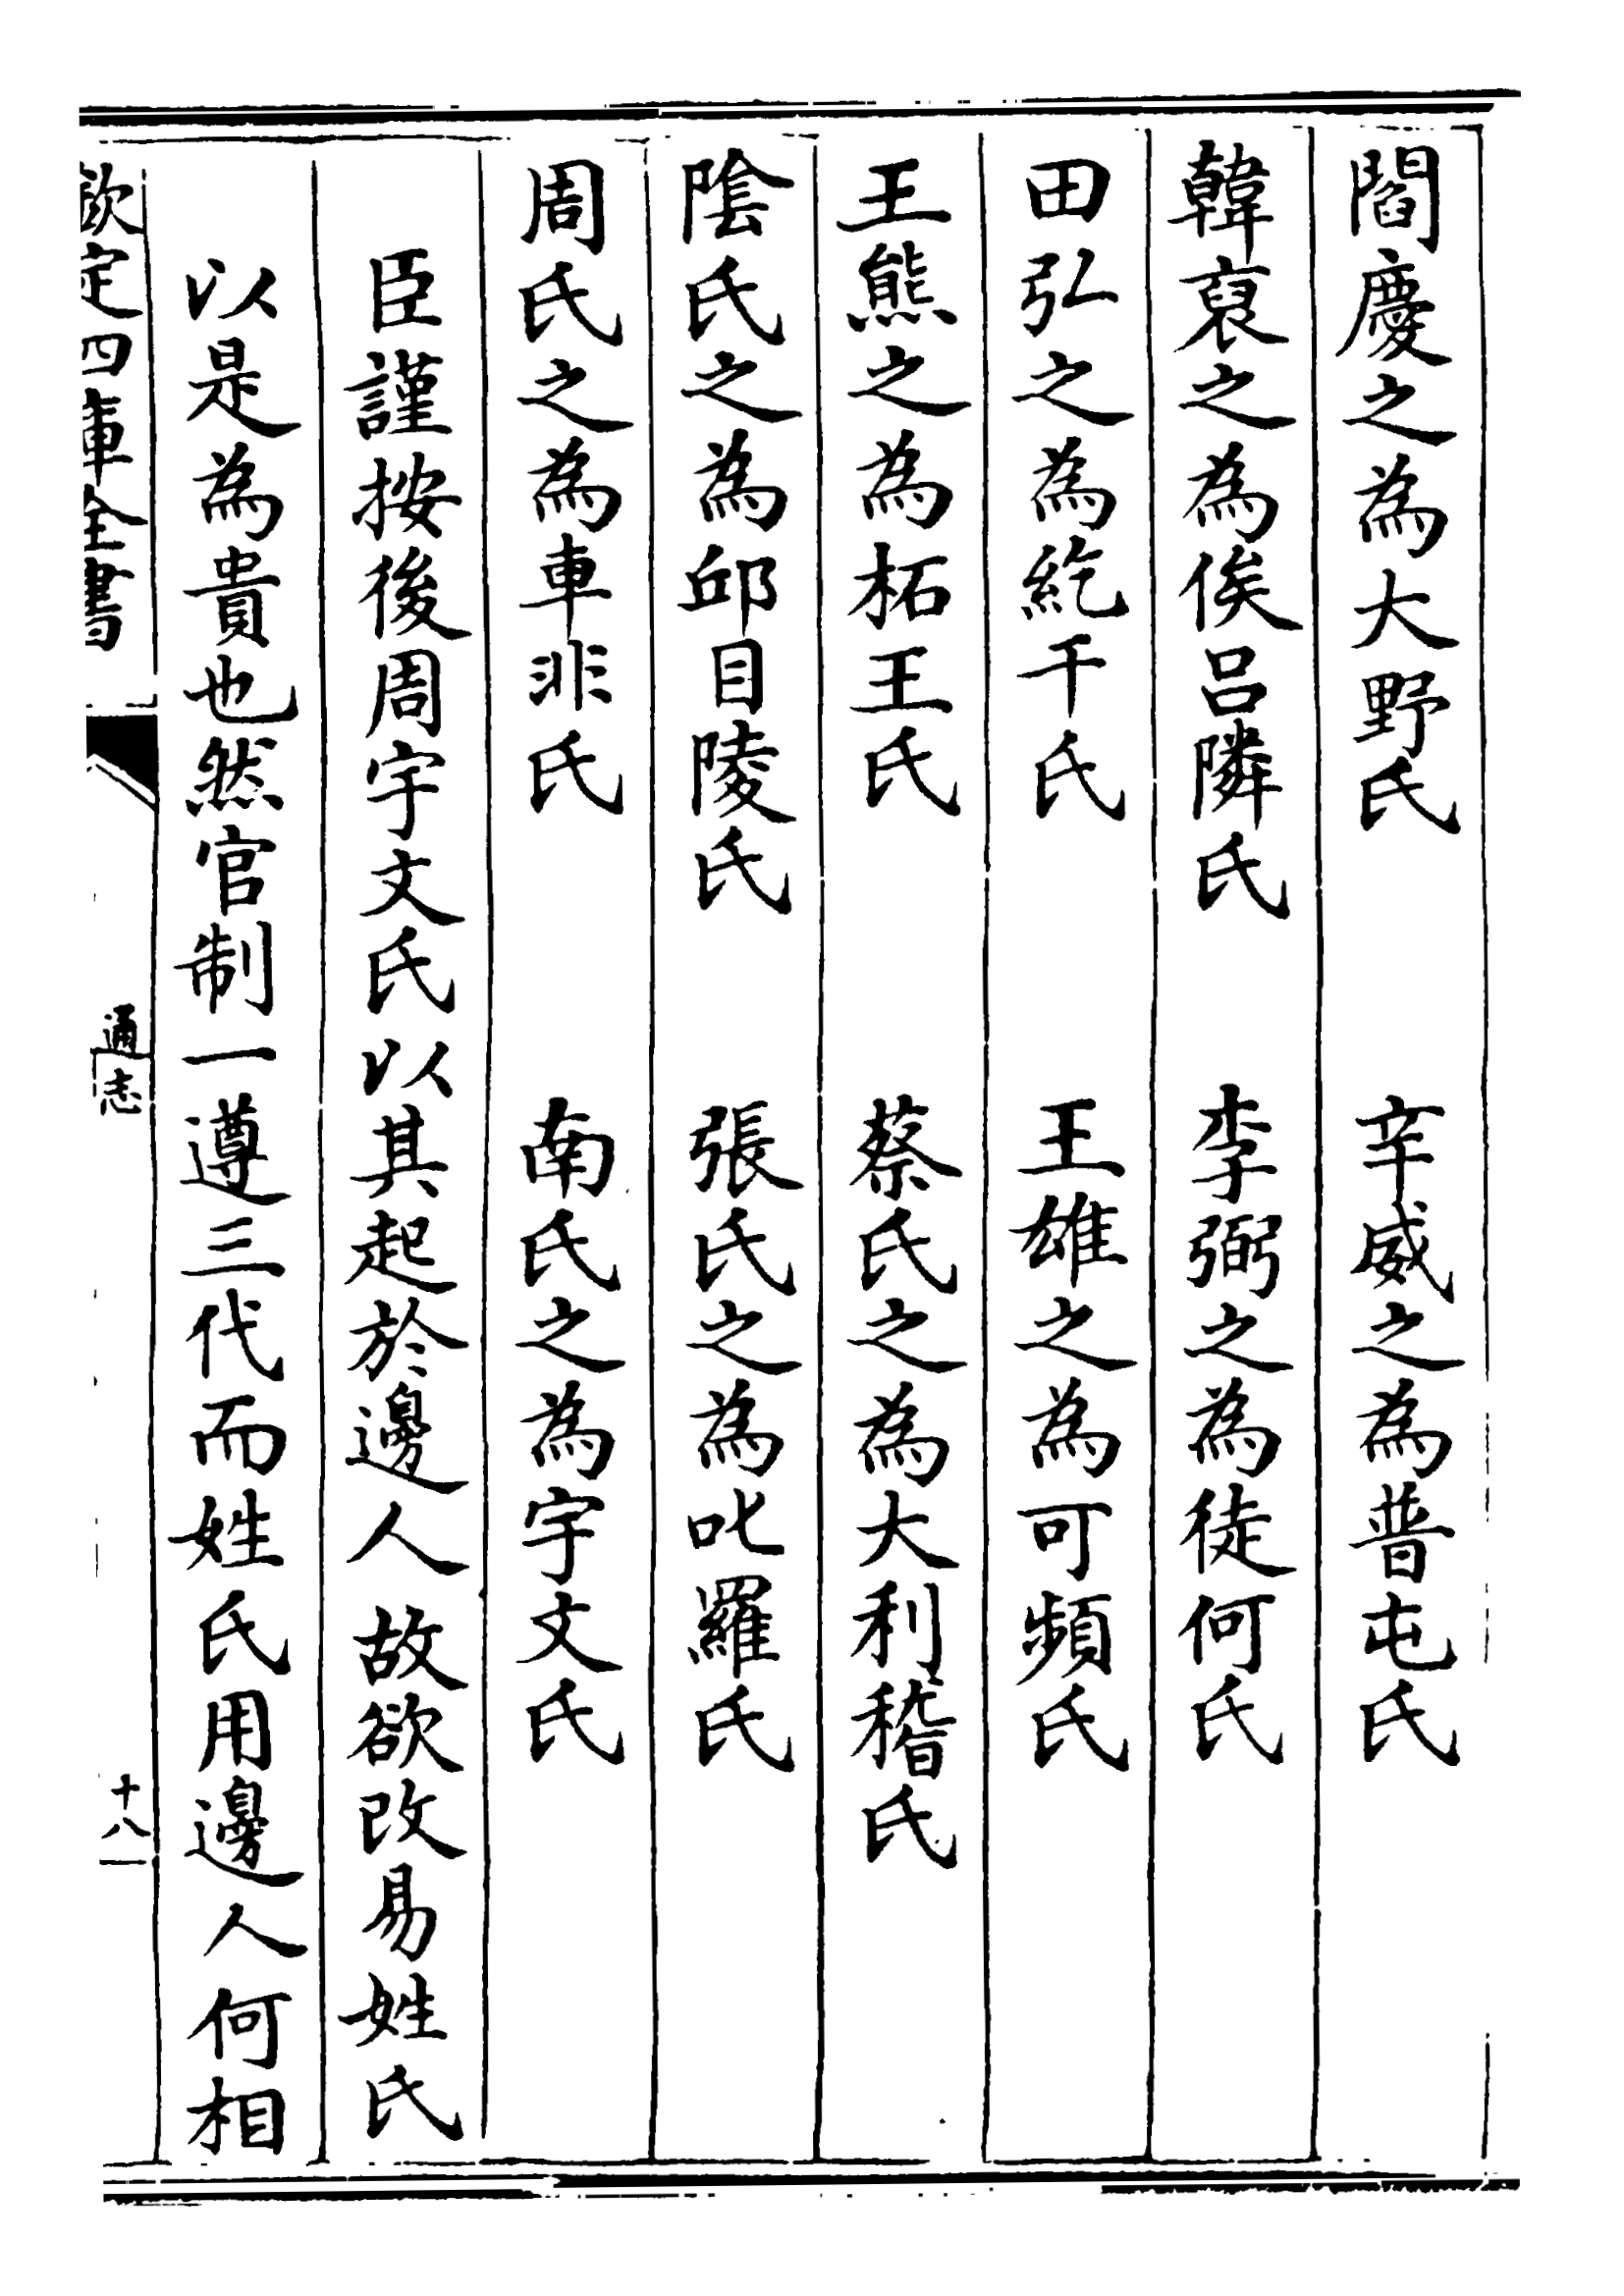 閻慶之為大野氏　辛威之為普屯氏
韓裒之為俟呂隣氏　李弼之為徒何氏
田弘之為紇干氏　王雄之為可頻氏
王熊之為柘王氏　蔡氏之為大利稽氏
陰氏之為邱目陵氏　張氏之為叱羅氏
周氏之為車非氏　南氏之為宇文氏
臣謹按後周宇文氏以其起於邊人故欲改易姓氏
以是為貴也然官制一遵三代而姓氏用邊人何相
欽定四庫全書
通志
十八